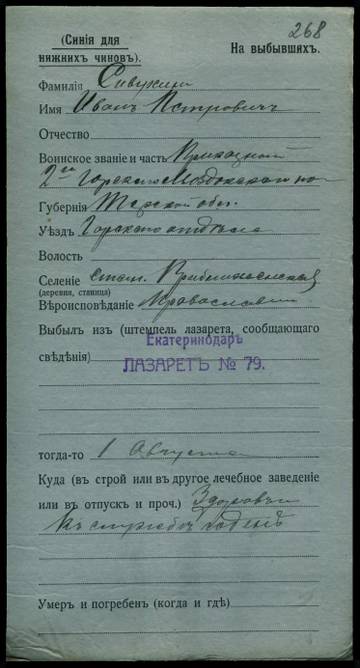 268
(Синія для
нижнихъ чиновъ).
На выбывшихъ.
Фамилія
Имя Иванъ Петровичъ
Отчество
Воинское званіе и часть Приказный
2го Горско-Моздокскаго по
Губернія Терской обл.
Уѣздъ
Волость
Селеніе Стан.
(деревня, станица)
Вѣроисповѣданіе Православн
Выбылъ изъ (штемпель лазарета, сообщающаго
свѣдѣнія)
Екатеринодаръ
ЛАЗАРЕТЪ № 79.
тогда-то 1 Августа
Куда (въ строй или въ другое лечебное заведеніе
или въ отпускъ и проч.) Здоровъ и
къ службѣ годенъ
Умеръ и погребенъ (когда и гдѣ)